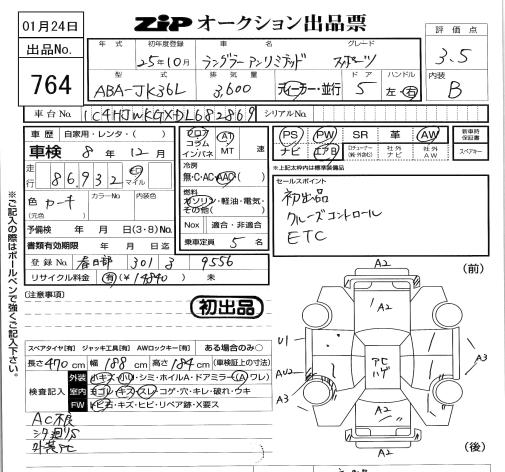 01月24日
ZiP オークション出品票
出品No.
764
年式 初年度登録 車名 グレード
25年10月 ラングラーアンリミテッド スポーツ
型式 排気量 ドア ハンドル
ABA-JK36L 3,600 ディーラー・並行 5 左・右
評価点
3.5
内装
B
車台No. 1C4HJWKGXDL682869 シリアルNo.
車歴 自家用・レンタ・( )
車検 8年12月
走行 86,932 km マイル
色 カーキ
(元色)
カラーNo. 内装色
予備検 年 月 日(3・8)No.
書類有効期限 年 月 日迄
登録No. 春日部 301 3 9556
リサイクル料金 有(¥14840) 未
フロア コラム インパネ
AT MT 速
冷房
無・C・AC・AAC
燃料
ガソリン・軽油・電気・その他( )
Nox 適合・非適合
乗車定員 5名
PS PW SR 革 AW
ナビ エアB 社外ナビ 社外AW
新車時保証書
スペアキー
※上記太枠内は標準装備品
セールスポイント
初出品
クルーズコントロール
ETC
※ご記入の際はボールペンで強くご記入下さい。
(注意事項)
初出品
スペアタイヤ[有] ジャッキ工具[有] AWロックキー[有] ある場合のみ○
長さ470cm 幅188cm 高さ184cm (車検証上の寸法)
検査記入
外装 小キズ・小U・シミ・ホイルA・ドアミラー(A)ワレ)
室内 ヨゴレ・キズ・スレ・コゲ・穴・キレ・破れ・ウキ
FW トビ石・キズ・ヒビ・リペア跡・X要ス
外装PC
(前)
A2
1 A2
U1
AU2
A3
PC
ハゲ
A3
A2
A2
(後)